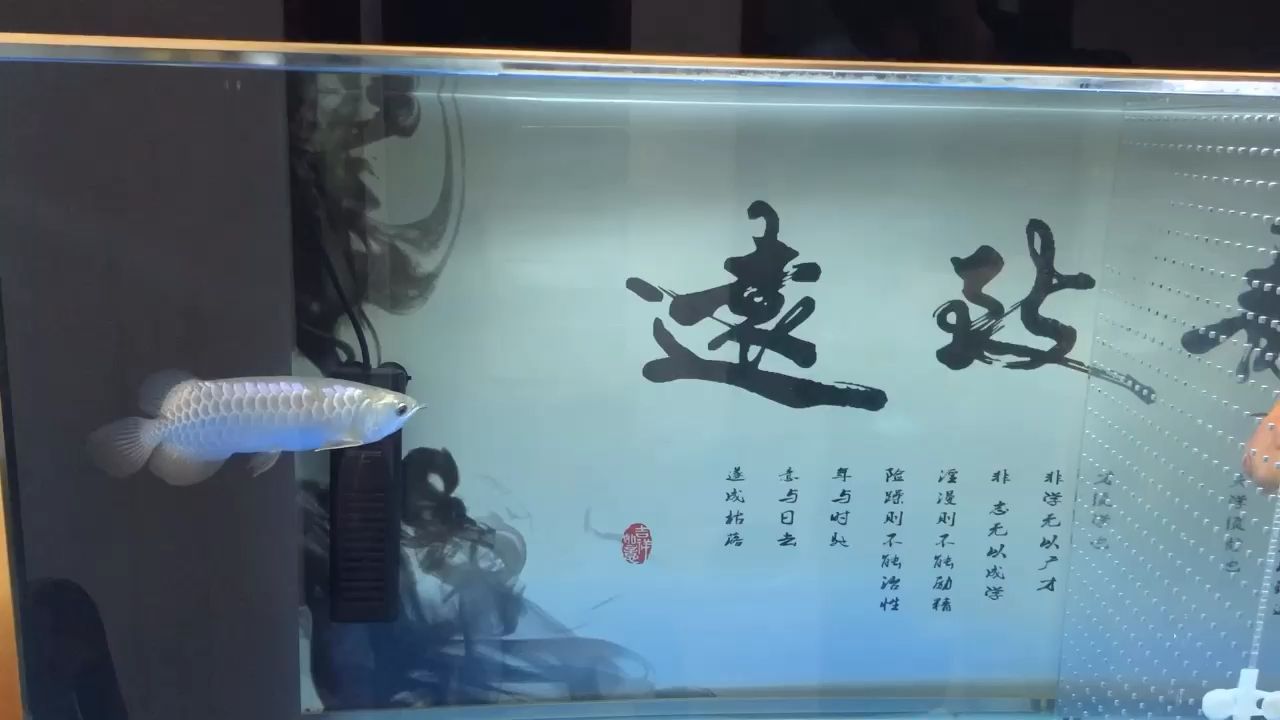 致遠
才须学也
非学无以广才
非志无以成学
淫漫则不能励精
险躁则不能治性
年与时驰
意与日去
遂成枯落
吉祥如意